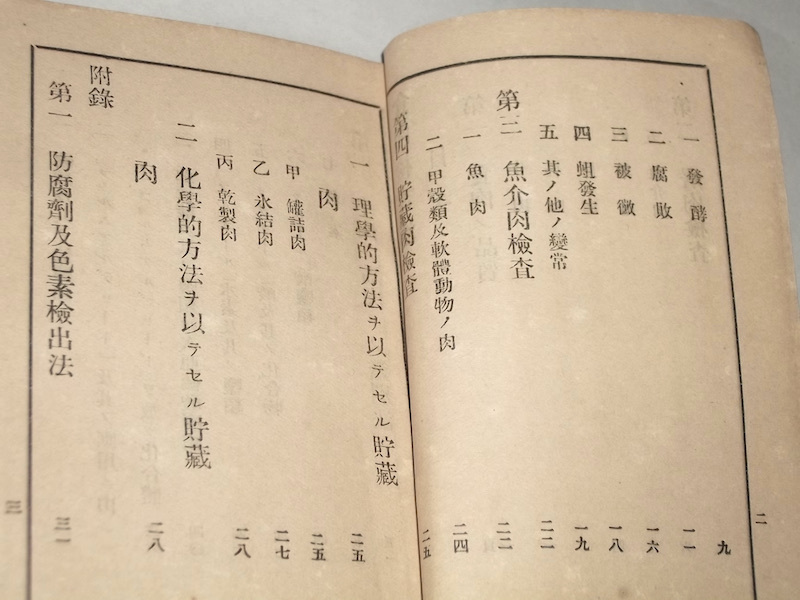 二
一 發酵 九
二 腐敗 一一
三 被黴 一六
四 蛆發生 一八
五 其ノ他ノ變常 一九
第三 魚介肉檢査 二二
一 魚肉 二二
二 甲殼類及軟體動物ノ肉 二四
第四 貯藏肉檢査 二五
一 理學的方法ヲ以テセル貯藏
肉 二五
甲 罐詰肉 二五
乙 氷結肉 二七
丙 乾製肉 二八
二 化學的方法ヲ以テセル貯藏
肉 二八
附錄
第一 防腐劑及色素檢出法 三一
三